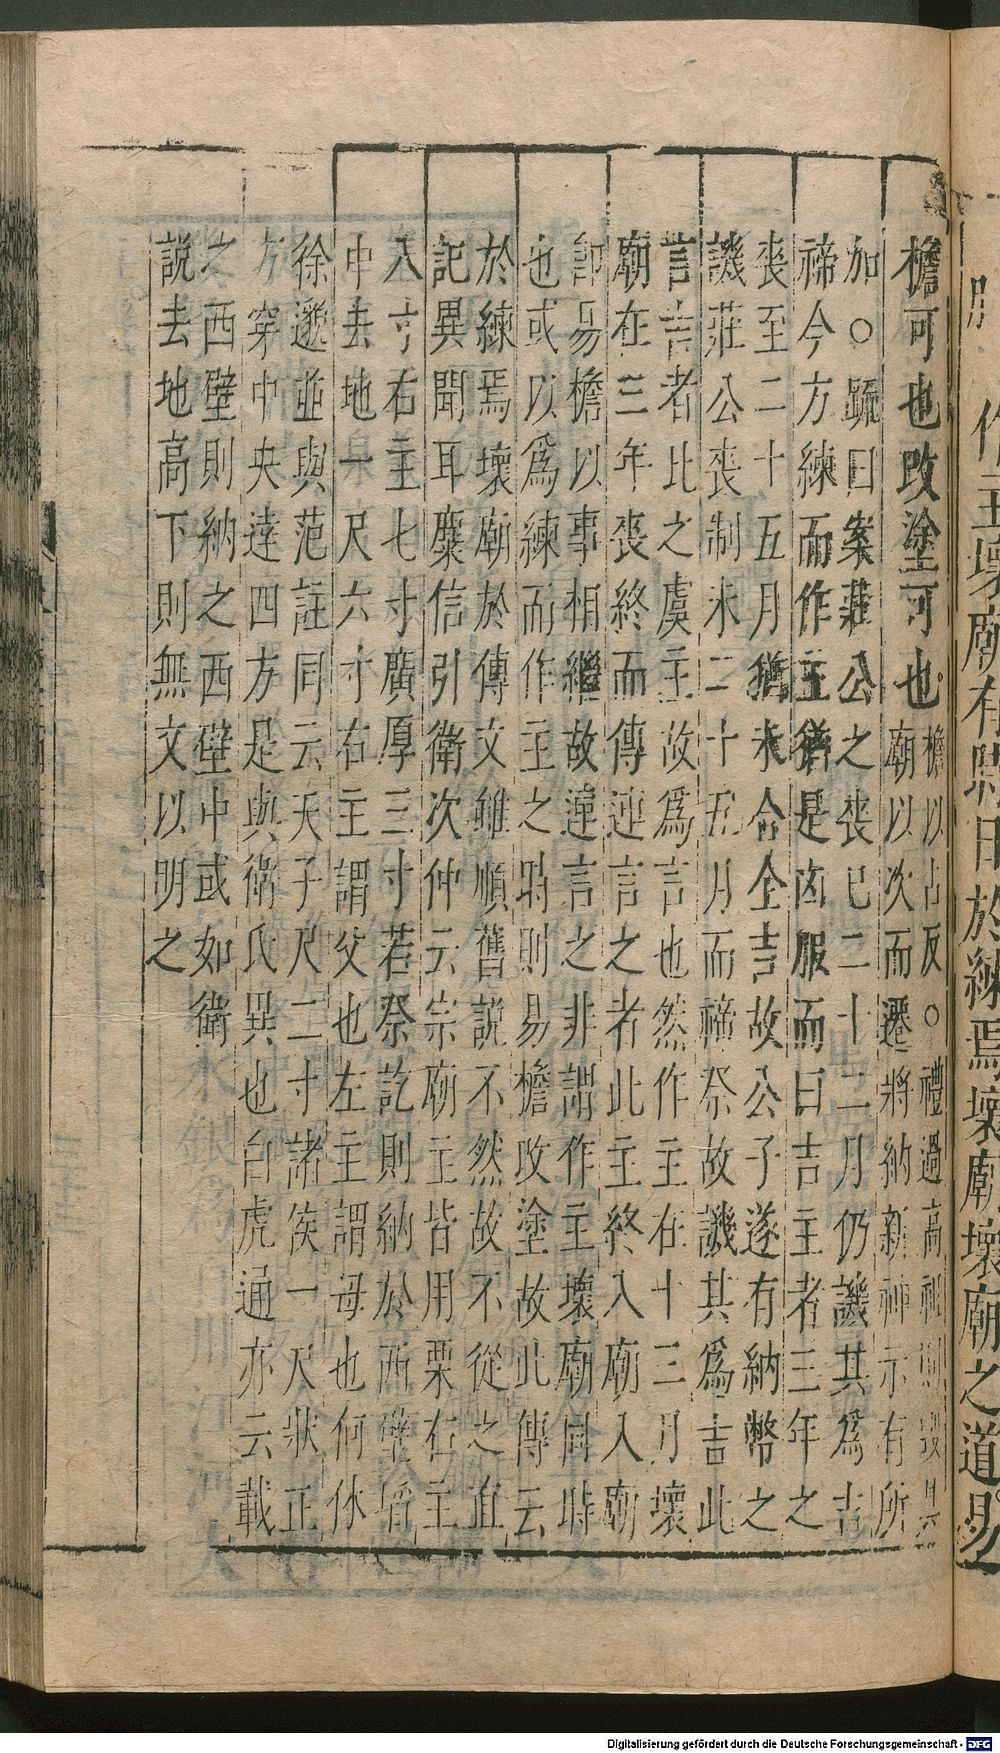 作主壞廟有時日於練焉壞廟壞廟之道易
檐可也改塗可也
檐以占反○禮過高祖則毀其
廟以次而遷將納新神示有所
加○䟽曰案莊公之喪已二十二月仍譏其爲吉
禘今方練而作主猶是凶服而曰吉主者三年之
喪至二十五月猶未合全吉故公子遂有納幣之
譏莊公喪制未二十五月而禘祭故譏其爲吉此
言吉者比之虞主故爲言也然作主在十三月壞
廟在三年喪終而傳連言之者此主終入廟入廟
即易檐以事相繼故連言之非謂作主壞廟同時
也或以爲練而作主之時則易檐改塗故此傳云
於練焉壞廟於傳文雖順舊說不然故不從之直
記異聞耳糜信引衛次仲云宗廟主皆用栗右主
八寸右主七寸廣厚三寸若祭訖則納於西壁埳
中去地一尺六寸右主謂父也左主謂母也何休
徐邈並與范註同云天子尺二寸諸侯一尺狀正
方穿中央達四方是與衛氏異也白虎通亦云載
之西壁則納之西壁中或如衛
說去地高下則無文以明之
Digitalisierung gefördert durch die Deutsche Forschungsgemeinschaft - DFG